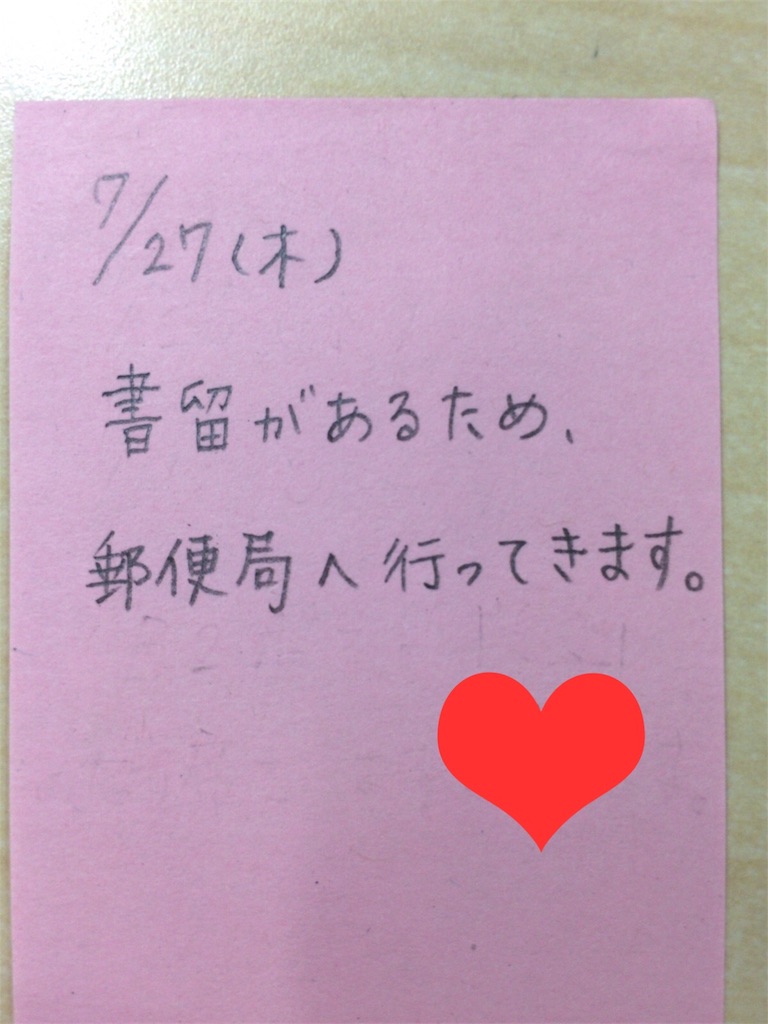 7/27(木)
書留があるため、
郵便局へ行ってきます。